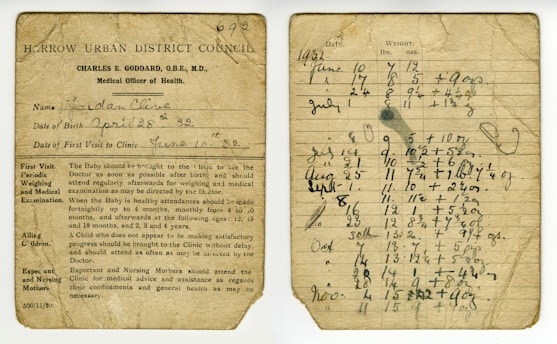 692
HARROW URBAN DISTRICT COUNCIL
CHARLES E. GODDARD, O.B.E., M.D.,
Medical Officer of Health.
Name Jordan Clive
Date of Birth April 28th 32
Date of First Visit to Clinic June 10th 32
First Visit. The Baby should be brought to the Clinic to see the
Periodic Doctor as soon as possible after birth, and should
Weighing attend regularly afterwards for weighing and medical
and Medical examination as may be directed by the Doctor.
Examination. When the Baby is healthy attendances should be made
fortnightly up to 4 months, monthly from 4 to 10
months, and afterwards at the following ages: 12, 15
and 18 months, and 2, 3 and 4 years.
Ailing A Child who does not appear to be making satisfactory
Children. progress should be brought to the Clinic without delay,
and should attend as often as may be directed by the
Doctor.
Expectant Expectant and Nursing Mothers should attend the
and Nursing Clinic for medical advice and assistance as regards
Mothers their confinements and general health as may be
necessary.
500/11/30.
DATE. WEIGHT:
1932 lbs. ozs.
June 10 7 12
" 17 8 5 + 9 ozs.
" 24 8 9¼ + 4¼ oz
July 1 8 11
" 8 9 5 + 10 oz
July 14 9 10½ + 5½ oz
" 21 10 + 6
Aug 25 11 7¼
Sept 1 11 10 + 2¾ oz
" 8 11 11½ + 1½ oz
" 16 12 1 + 5½ oz
30th 13 2
Oct 7 13 7 + 5 ozs
" 14 13 12½ + 5½ oz
20 14 1
" 28 14 9 + 8 oz
Nov 4 15 + 9 oz
" 11 15 9